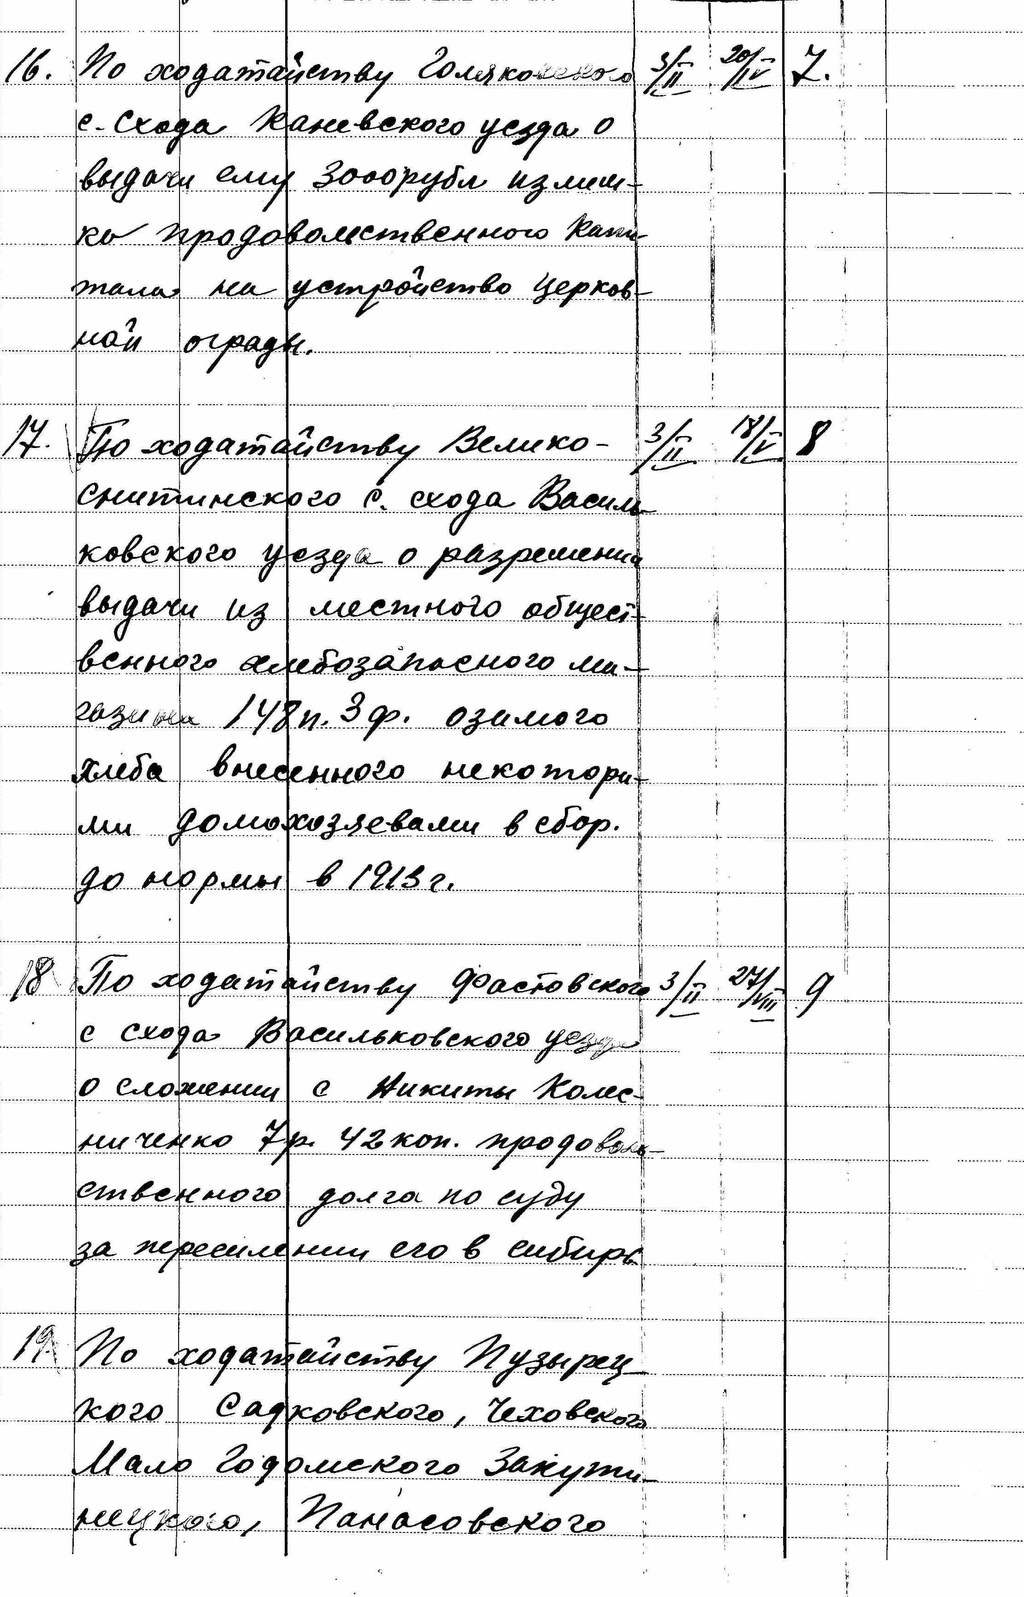 16. По ходатайству Голяковского 3/II 20/IV 7.
с. схода Каневского уезда о
выдачи ему 3000рубл излиш-
ка продовольственного капи-
тала на устройство церков-
ной ограды.
17. По ходатайству Велико- 3/II 18/V 8
снитинского с. схода Василь-
ковского уезда о разрешении
выдачи из местного общест-
венного хлебозапасного ма-
газина 148п. 3ф. озимого
хлеба внесенного некотори-
ми домохозяевами в сбор.
до нормы в 1913г.
18 По ходатайству Фастовского 3/II 27/VIII 9
с схода Васильковского уезда
о сложении с Никиты Колес-
ниченко 7р. 42коп. продоволь-
ственного долга по суду
за переселении его в сибирь
19. По ходатайству Пузырец
кого Садковского, Чеховского
Мало Годомского Закути-
нецкого, Панасовского